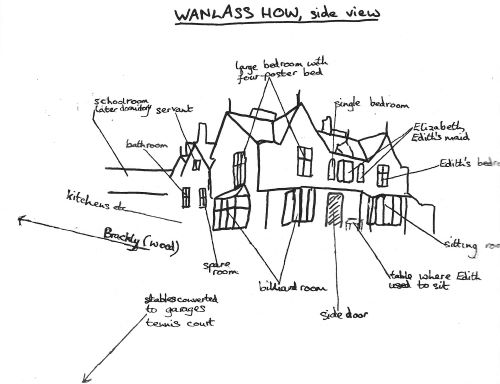 WANLASS HOW, side view
large bedroom with
four-poster bed
schoolroom
later dormitory
servant
single bedroom
bathroom
Elizabeth,
Edith's maid
Edith's bedr
kitchens etc
Brackly (wood)
spare
room
billiard room
side door
sitting roo
table where Edith
used to sit
stables converted
to garages
tennis court